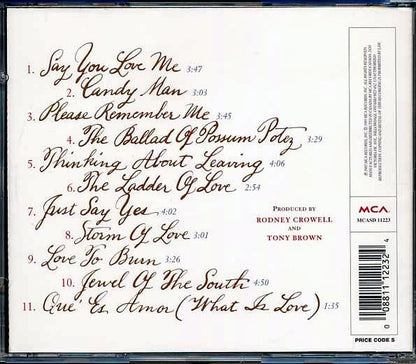 1. Say You Love Me 3:47
2. Candy Man 3:03
3. Please Remember Me 3:45
4. The Ballad Of Possum Potez 3:29
5. Thinking About Leaving 4:06
6. The Ladder Of Love 2:54
7. Just Say Yes 4:02
8. Storm Of Love 3:01
9. Love To Burn 3:26
10. Jewel Of The South 4:50
11. Que Es Amor (What Is Love) 1:35
PRODUCED BY
RODNEY CROWELL
AND
TONY BROWN
MCA
MCASD 11223
0 08811 12232 4
PRICE CODE 5